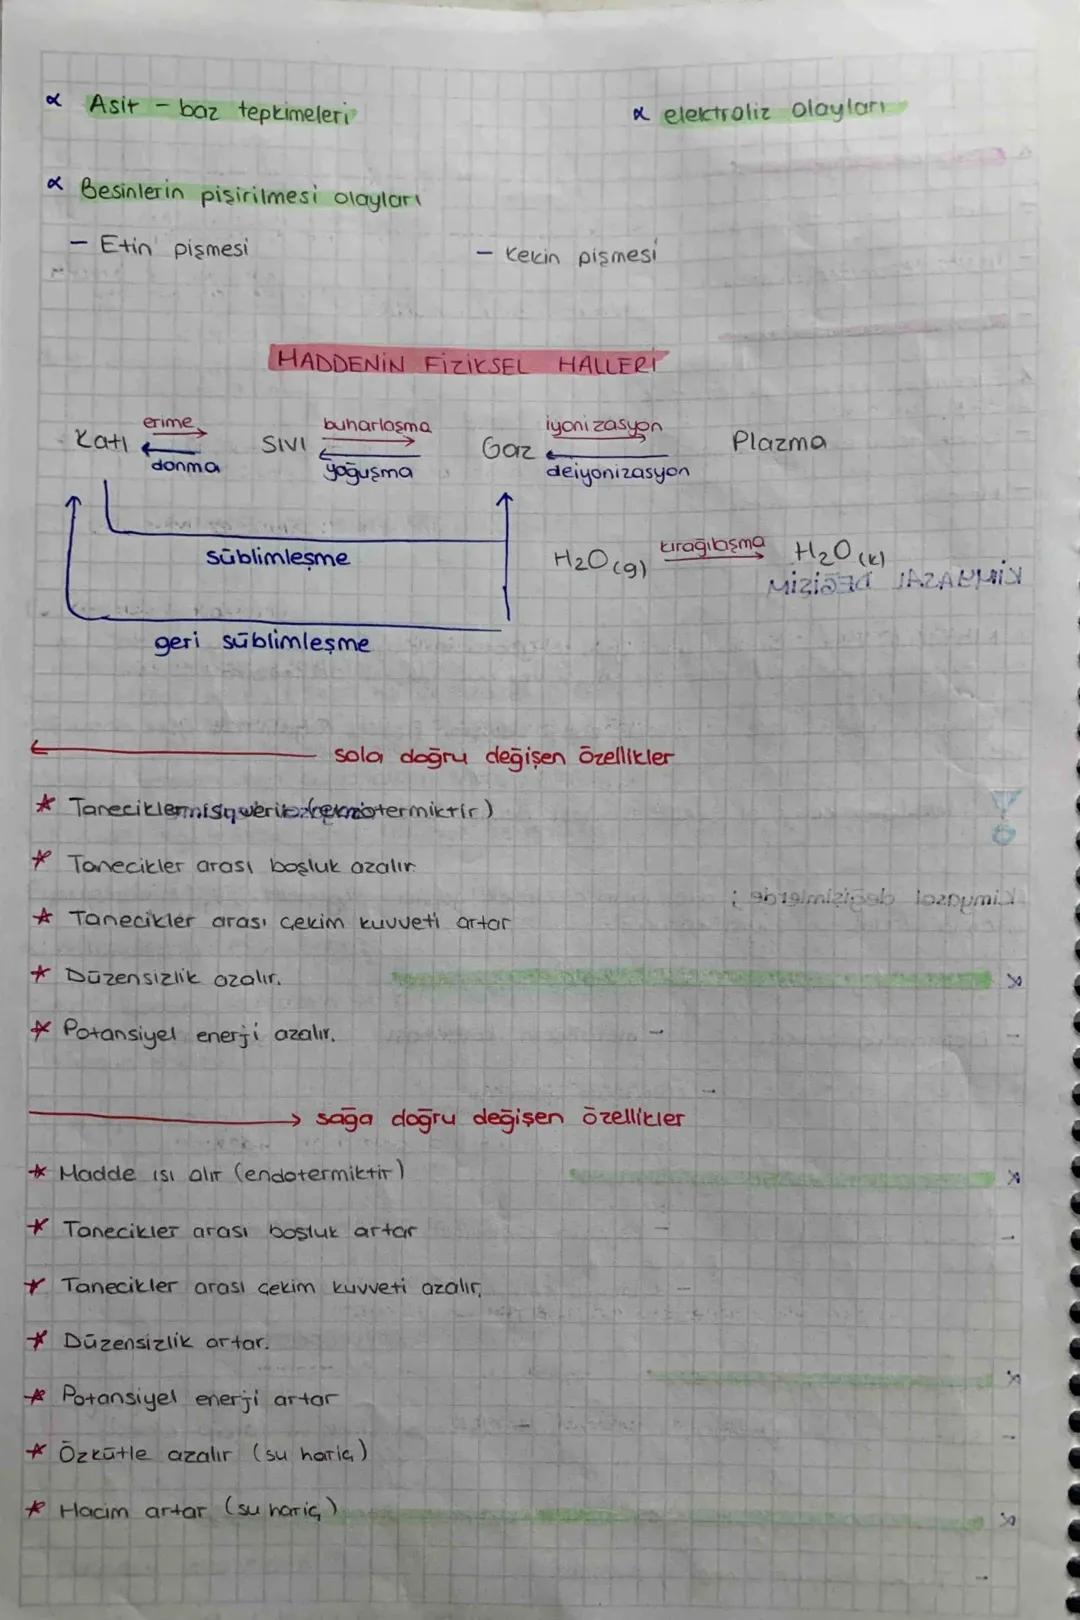 α Asit - baz tepkimeleri
α elektroliz olayları
α Besinlerin pişirilmesi olayları
- Etin pişmesi
- Kekin pişmesi
MADDENİN FİZİKSEL HALLERİ
erime
buharlaşma
iyonizasyon
Katı
SIVI
Gaz
Plazma
donma
yoğuşma
deiyonizasyon
süblimleşme
H2O(g) kırağılaşma H2O(k)
KİMYASAL DEĞİŞİM
geri süblimleşme
sola doğru değişen özellikler
* Tanecikler
termiktir)
* Tanecikler arası boşluk azalır.
Kimyasal değişimlerde;
* Tanecikler arası çekim kuvveti artar
* Düzensizlik azalır.
* Potansiyel enerji azalır.
sağa doğru değişen özellikler
* Madde ısı alır (endotermiktir)
* Tanecikler arası boşluk artar
* Tanecikler arası çekim kuvveti azalır.
* Düzensizlik artar.
* Potansiyel enerji artar
* Özkütle azalır (su hariç)
* Hacim artar (su hariç)